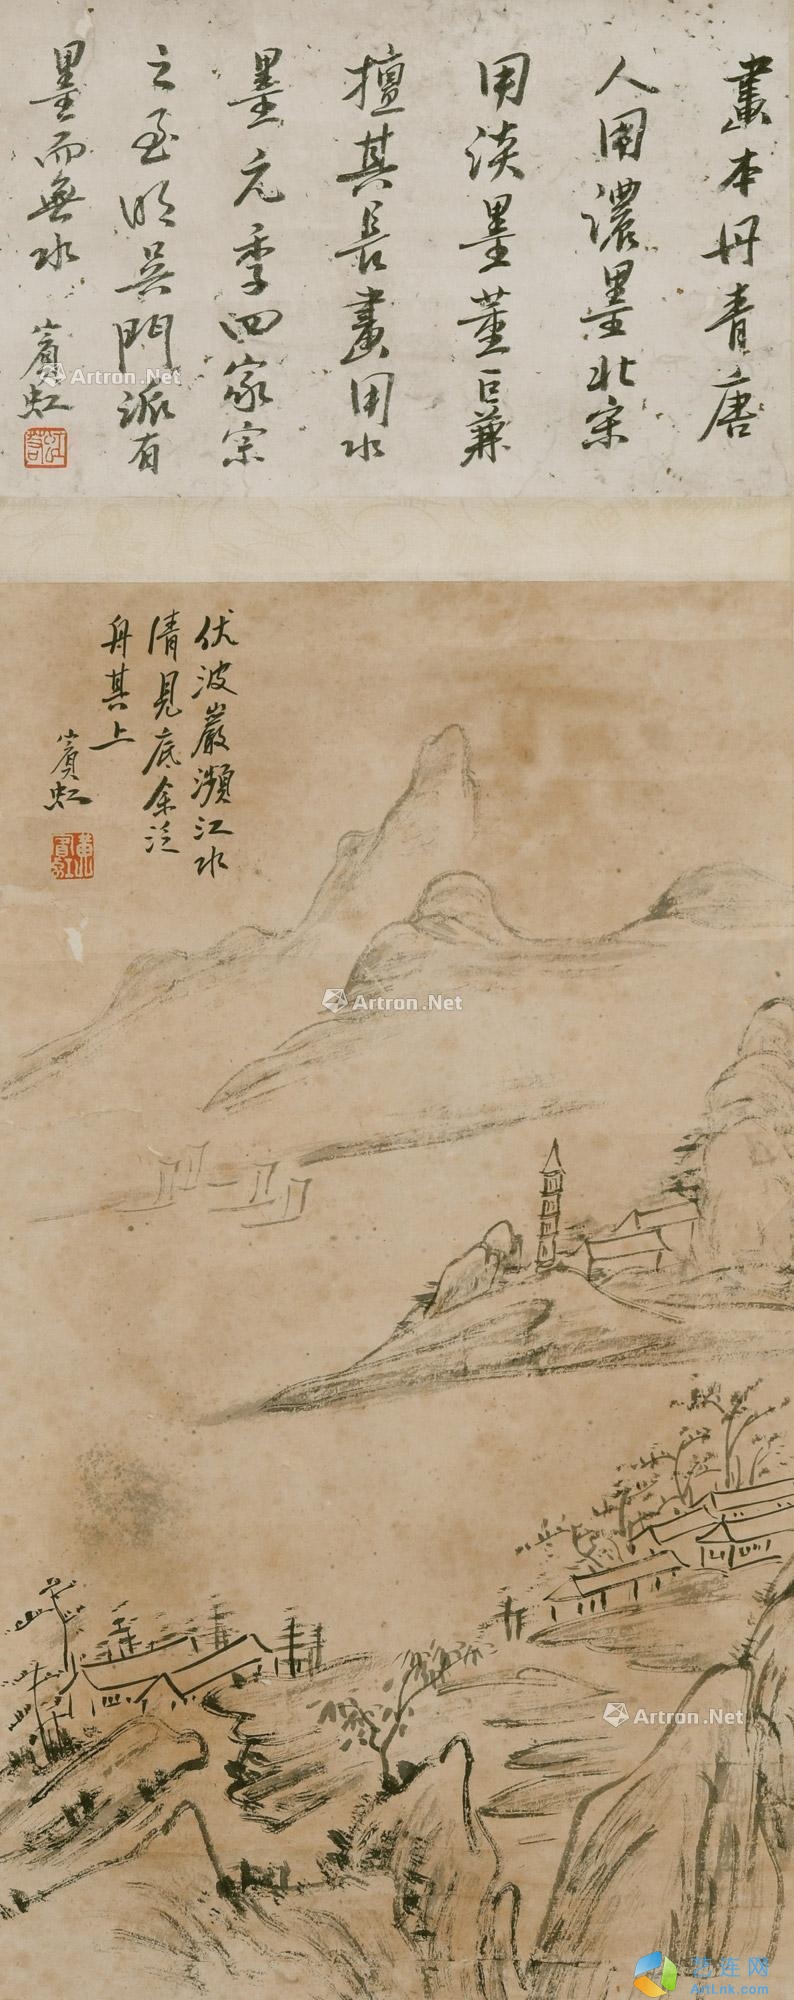 畫本丹青唐
人用濃墨北宋
用淡墨董巨兼
擅其長畫用水
墨元季四家宗
之至明吳門派有
墨而無水
賓虹
伏波巖瀕江水
清見底余泛
舟其上
賓虹
Artron.Net
Artron.Net
Artron.Net
的连网
ArtLnk.com